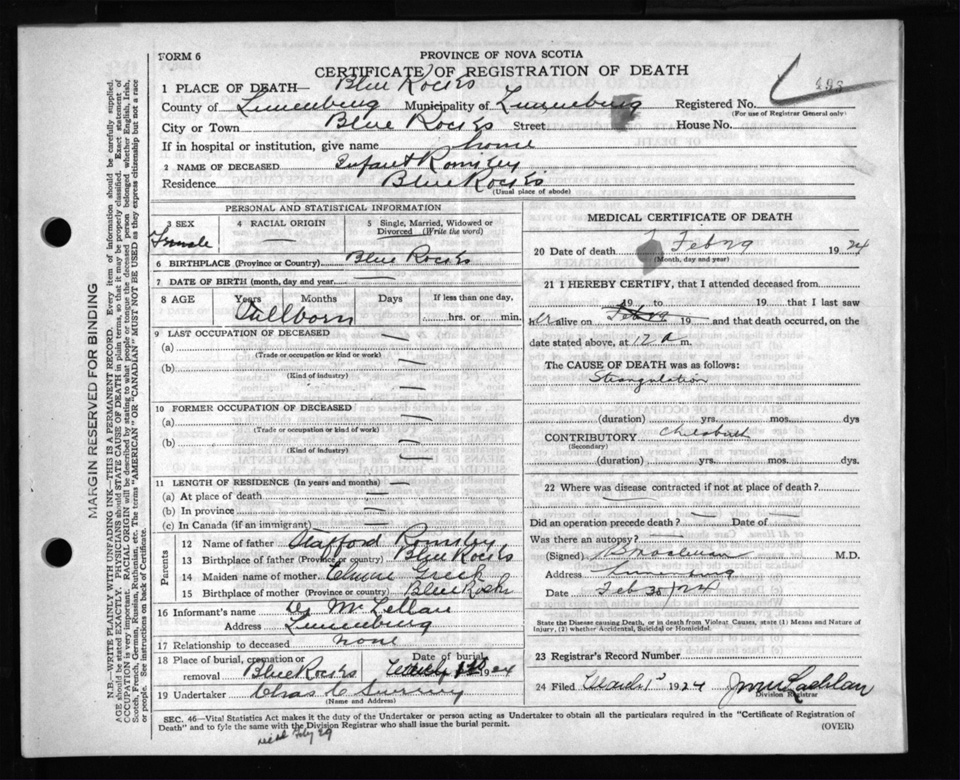 FORM 6
PROVINCE OF NOVA SCOTIA
CERTIFICATE OF REGISTRATION OF DEATH
1 PLACE OF DEATH— Blue Rocks
County of Lunenburg Municipality of Lunenburg Registered No. 493
(For use of Registrar General only)
City or Town Blue Rocks Street House No.
If in hospital or institution, give name home
2 NAME OF DECEASED Infant Romkey
Residence Blue Rocks
(Usual place of abode)
PERSONAL AND STATISTICAL INFORMATION
3 SEX 4 RACIAL ORIGIN 5 Single, Married, Widowed or Divorced (Write the word)
Female —
6 BIRTHPLACE (Province or Country) Blue Rocks
7 DATE OF BIRTH (month, day and year) —
8 AGE Years Months Days If less than one day,
Stillborn hrs. or min.
9 LAST OCCUPATION OF DECEASED
(a) —
(Trade or occupation or kind or work)
(b) —
(Kind of industry)
10 FORMER OCCUPATION OF DECEASED
(a) —
(Trade or occupation or kind of work)
(b) —
(Kind of industry)
11 LENGTH OF RESIDENCE (In years and months)
(a) At place of death —
(b) In province —
(c) In Canada (if an immigrant) —
Parents
12 Name of father Romkey
13 Birthplace of father (Province or country) Blue Rocks
14 Maiden name of mother
15 Birthplace of mother (Province or country) Blue Rocks
16 Informant's name Dr McLellan
Address Lunenburg
17 Relationship to deceased none
18 Place of burial, cremation or removal Blue Rocks Date of burial March 1924
19 Undertaker Chas
(Name and Address)
MEDICAL CERTIFICATE OF DEATH
20 Date of death Feb 29 1924
(Month, day and year)
21 I HEREBY CERTIFY, that I attended deceased from
19 to 19 that I last saw
her alive on Feb 29 19 and that death occurred, on
date stated above, at 12 a m.
The CAUSE OF DEATH was as follows:
Strangulation
(duration) yrs. mos. dys
CONTRIBUTORY Childbirth
(Secondary)
(duration) yrs. mos. dys.
22 Where was disease contracted if not at place of death?
—
Did an operation precede death? — Date of —
Was there an autopsy? —
(Signed) M.D.
Address Lunenburg
Date Feb 30/24
State the Disease causing Death, or in death from Violent Causes, state (1) Means and Nature of Injury, (2) whether Accidental, Suicidal or Homicidal.
23 Registrar's Record Number
24 Filed March 1st 1924 Lachlan
Division Registrar
SEC. 46—Vital Statistics Act makes it the duty of the Undertaker or person acting as Undertaker to obtain all the particulars required in the "Certificate of Registration of
Death" and to fyle the same with the Division Registrar who shall issue the burial permit. (OVER)
Feby 29
MARGIN RESERVED FOR BINDING
N.B.—WRITE PLAINLY WITH UNFADING INK—THIS IS A PERMANENT RECORD. Every item of information should be carefully supplied.
AGE should be stated EXACTLY. PHYSICIANS should STATE CAUSE OF DEATH in plain terms, so that it may be properly classified. Exact statement of
OCCUPATION is very important. RACIAL ORIGIN will be described by stating to what people or tongue the deceased person belonged whether English, Irish,
Scotch, French, German, Russian, Ruthenian, etc. The terms "AMERICAN" OR "CANADIAN" MUST NOT BE USED as they express citizenship but not a race
or people. See instructions on back of Certificate.